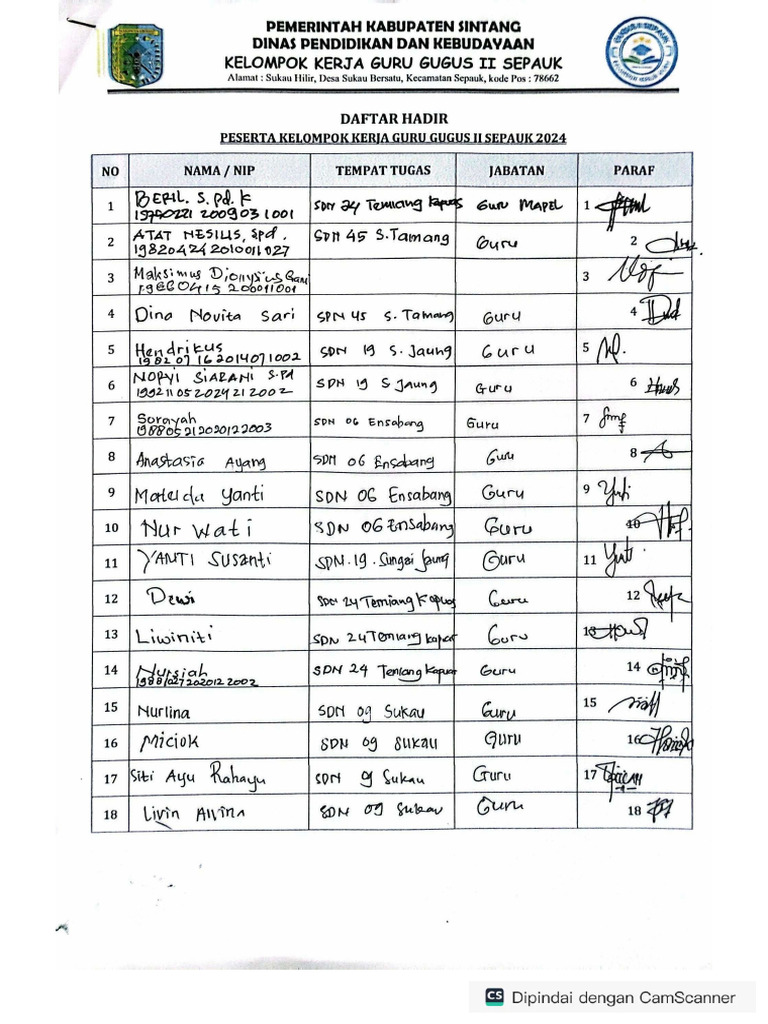 PEMERINTAH KABUPATEN SINTANG
DINAS PENDIDIKAN DAN KEBUDAYAAN
KELOMPOK KERJA GURU GUGUS II SEPAUK
Alamat : Sukau Hilir, Desa Sukau Bersatu, Kecamatan Sepauk, kode Pos : 78662
DAFTAR HADIR
PESERTA KELOMPOK KERJA GURU GUGUS II SEPAUK 2024
NO NAMA / NIP TEMPAT TUGAS JABATAN PARAF
1 BERIL. S.Pd.K SDN 24 Temiang Kapuas Guru MAPEL 1
2009031001
2 ATAT NESILIS, Spd. SDN 45 S.Tamang Guru 2
198204242010011027
3 Maksimus Dionysius 3
4 Dina Novita Sari SDN 45 S. Tamang Guru 4
5 Hendrikus SDN 19 S. Jaung Guru 5
198207162014071002
6 NOPYI SIARANI S.Pd SDN 19 S Jaung Guru 6
199211052024212002
7 Sorayah SDN 06 Ensabang Guru 7
198805212020122003
8 Anastasia Ayang SDN 06 Ensabang Guru 8
9 Matelda Yanti SDN 06 Ensabang Guru 9
10 Nur wati SDN 06 Ensabang Guru 10
11 YANTI SUSanti SDN.19.Sungai Jaung Guru 11
12 Dewi SDN 24 Temiang Kapuas Guru 12
13 Liwiniti SDN 24 Temiang Kapuas Guru 13
14 Nursiah SDN 24 Temiang Kapuas Guru 14
15 Nurlina SDN 09 Sukau Guru 15
16 Miciok SDN 09 SUKAU Guru 16
17 Siti Ayu Rahayu SDN 9 Sukau Guru 17
18 Livin Alvina SDN 09 Sukau Guru 18
CS Dipindai dengan CamScanner